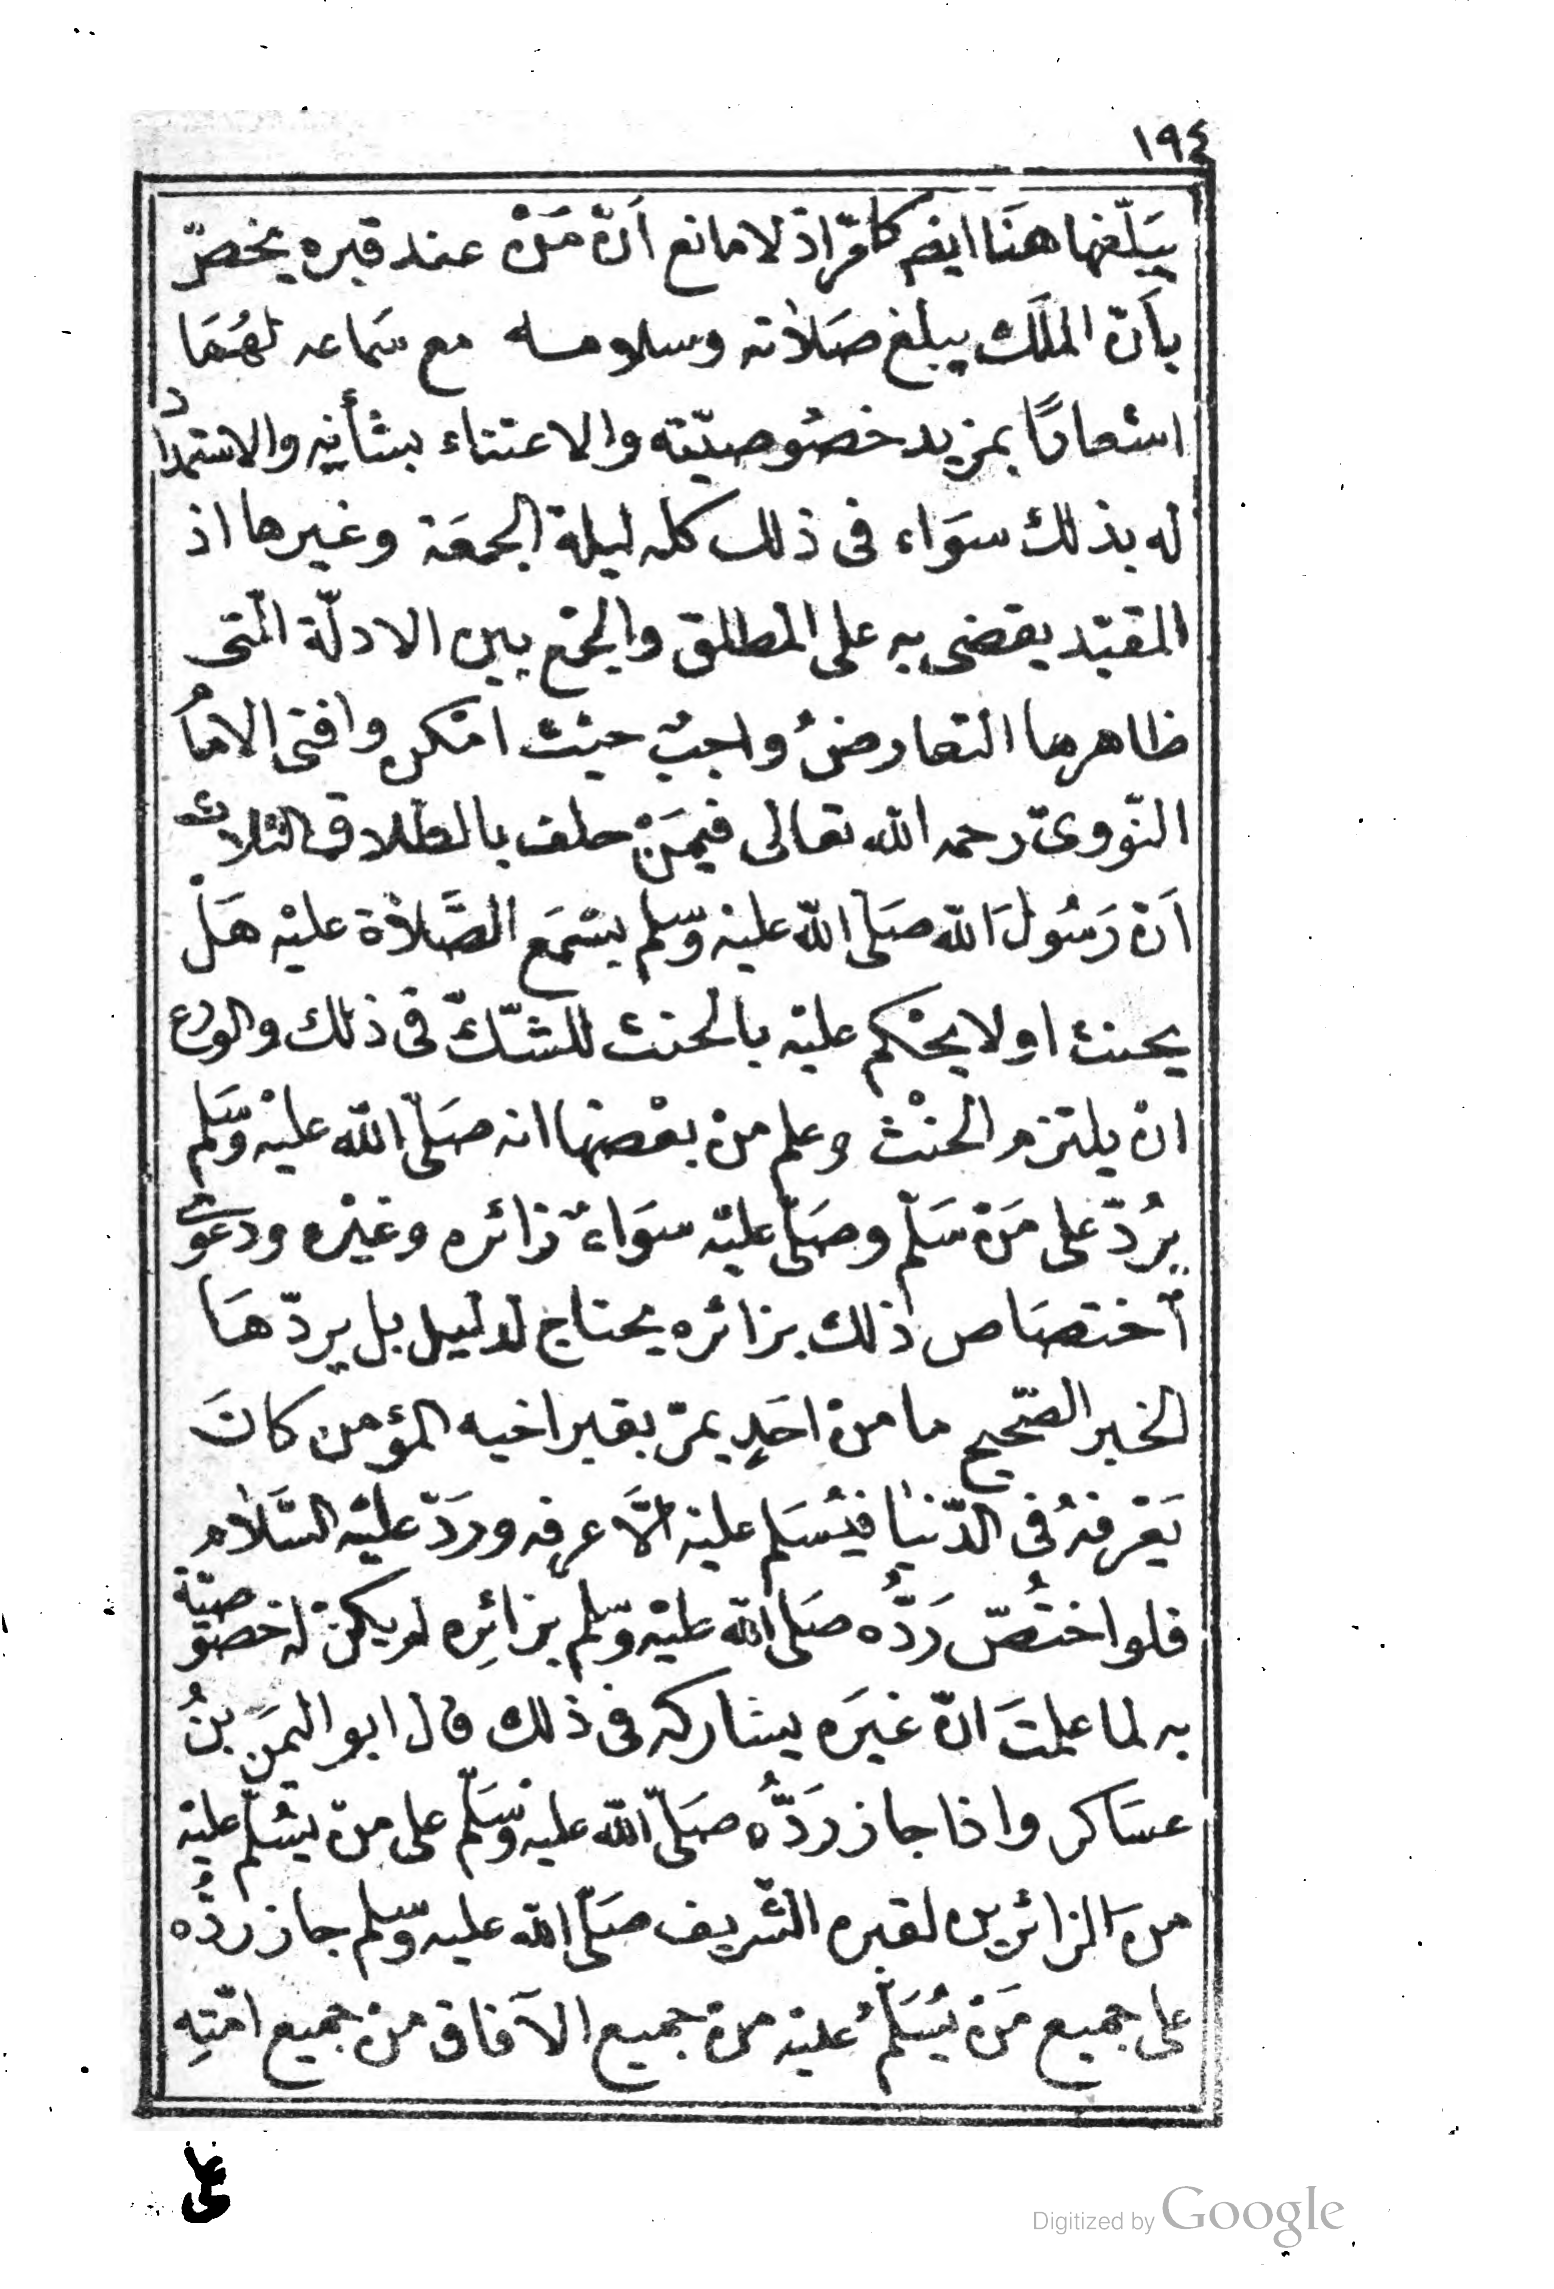 ١٩٤
يبَلّغها هنَا ايضًا كما مرّ اذ لا مانع اَنّ مَنْ عند قبره يخصّ
بأَنّ الملَك يبلغ صَلاٰته وسلامه مع سَماعه لهُمَا
اشعارًا بمزيد خصُوصيّته والاعتناء بشأنِه والاستمداد
له بذلك سوَاء فى ذلك كله ليلة الجمعَة وغيرها اذ
المقيّد يقضى به على المطلق والجمْع بين الادلّة الّتى
ظاهرها التعارضُ واجبٌ حيْث امْكن وافتى الامامُ
النّووىّ رحمه الله تعالى فيمَنْ حلف بالطلاق الثلاث
اَنّ رَسُولَ الله صَلى الله عليْه وسّلم يسْمَع الصَّلاٰة عليْه هَلْ
يحنث اولا يحْكم عليْه بالحنث للشّكّ فى ذلك والورع
انْ يلتزم الحنْث وعلم منْ بعْضها انه صَلّى الله عليْه وسَلم
يرُدّ على مَنْ سَلّم وصَلّى عليْه سوَاءٌ زائره وغيْره ودعْوى
اختصَاص ذلك بزائره يحتاج لدليل بل يردّ هَا
الخبر الصّحيح ما منْ احَدٍ يمرّ بقبر اخيه المؤمن كانَ
يَعْرفهُ فى الدّنيٰا فيُسَلم عليْه الَّا عرفه ورَدّ عليْه السَّلاٰم
فلو اختُصّ رَدُّه صَلى الله عليْه وسّلم بزائِره لم يكنْ له خصوصيّة
به لما علمتَ انّ غيَره يشاركه فى ذلك قال ابو اليمَن بنُ
عسَاكر واذا جاز رَدُّه صَلّى الله عليْه وسَّلم على منْ يسُلّم عليْه
منَ الزائرين لقبره الشّريف صَلّى الله عليه وسّلم جاز ردُّه
على جميع مَنْ يُسَلّمُ عليْه منْ جميع الآفاق منْ جميع امّتِه
على
Digitized by Google